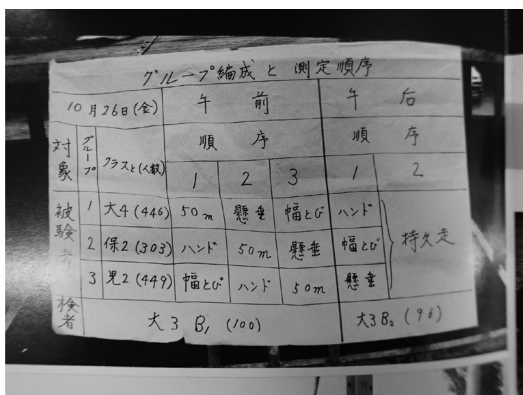 グループ編成と測定順序
10月26日(金) 午前 午后
対象 グループ クラスと(人数) 順序 順序
1 2 3 1 2
被験者 1 大4(446) 50m 懸垂 幅とび ハンド 持久走
2 保2(303) ハンド 50m 懸垂 幅とび
3 児2(449) 幅とび ハンド 50m 懸垂
検者 大3B₁(100) 大3B₂(96)